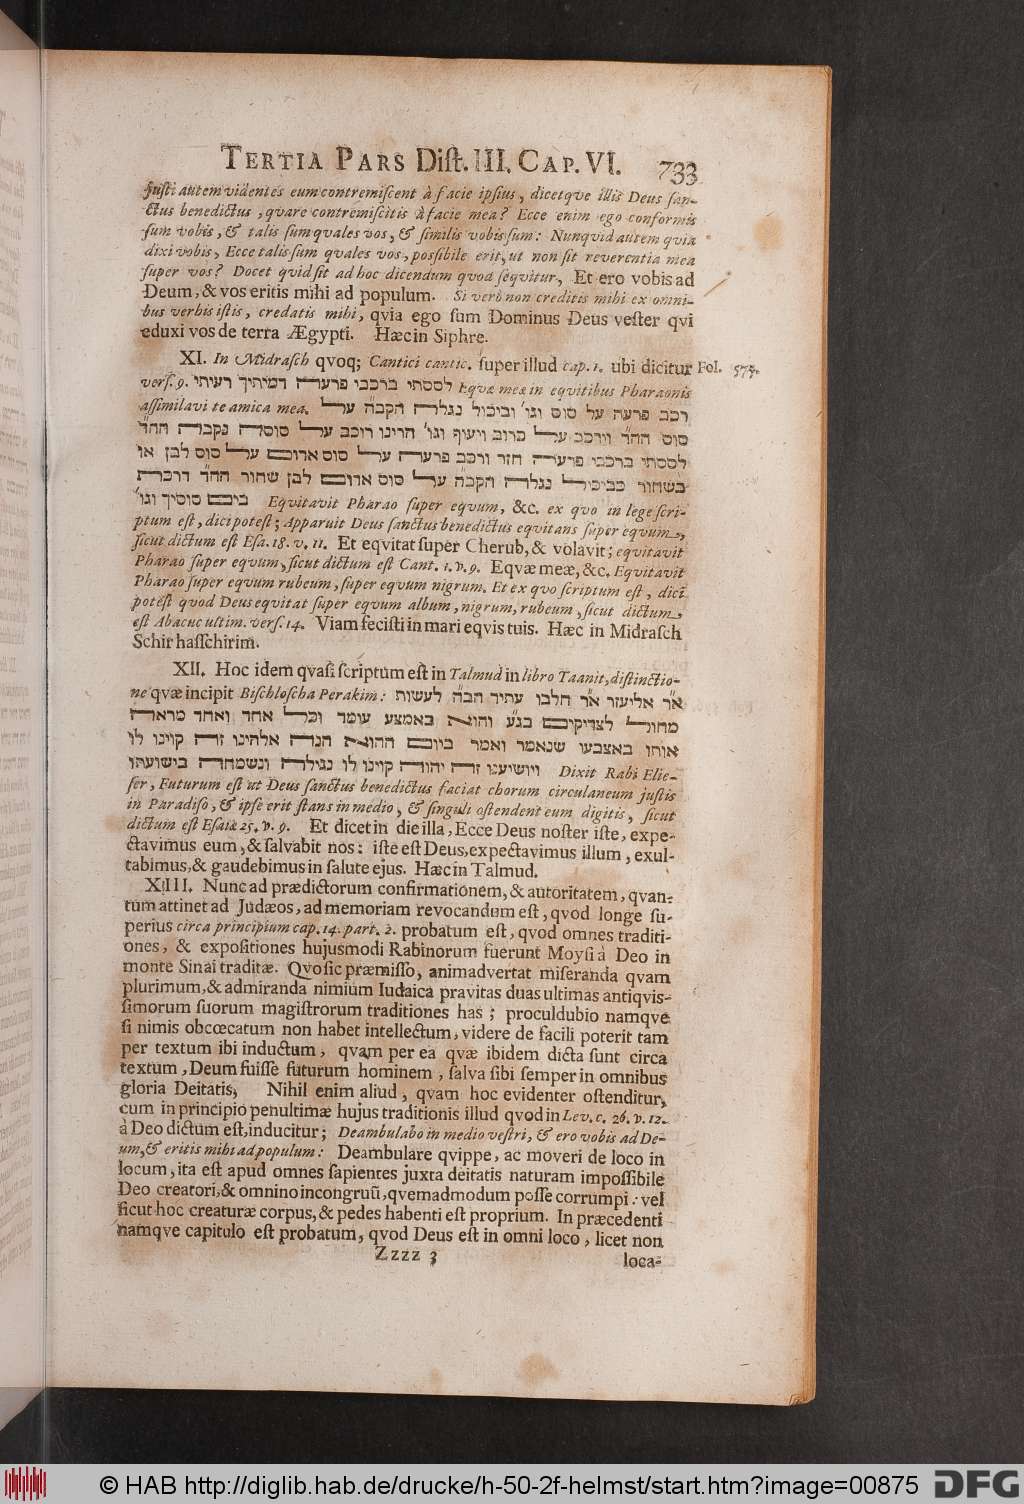 TERTIA PARS Diſt. III. CAP. VI. 733
juſti autem videntes eum contremiſcent à facie ipſius, dicetqve illis Deus ſan-
ctus benedictus, qvare contremiſcitis à facie mea? Ecce enim ego conformis
ſum vobis, & talis ſum qvales vos, & ſimilis vobis ſum: Nunqvid autem qvia
dixi vobis, Ecce talis ſum qvales vos, poſsibile erit, ut non ſit reverentia mea
ſuper vos? Docet qvid ſit ad hoc dicendum qvod ſeqvitur, Et ero vobis ad
Deum, & vos eritis mihi ad populum. Si verò non creditis mihi ex omni-
bus verbis iſtis, credatis mihi, qvia ego ſum Dominus Deus veſter qvi
eduxi vos de terra Ægypti. Hæc in Siphre.
XI. In Midraſch qvoq; Cantici cantic. ſuper illud cap. 1. ubi dicitur Fol. 575.
verſ. 9. לססתי ברכבי פרעה דמיתיך רעיתי Eqvæ meæ in eqvitibus Pharaonis
aſſimilavi te amica mea. רכב פרעה על סוס וגו׳ וביכול נגלה הקב״ה על
סוס הה״ד וירכב על כרוב ויעוף וגו׳ הרינו רוכב על סוסה נקבה הה״ד
לססתי ברכבי פרעה חזר ורכב פרעה על סוס אדום על סוס לבן או
בשחור כביכול נגלה הקבה על סוס אדום לבן שחור הה״ד דרכת
בים סוסיך וגו׳ Eqvitavit Pharao ſuper eqvum, &c. ex qvo in lege ſcri-
ptum eſt, dici poteſt; Apparuit Deus ſanctus benedictus eqvitans ſuper eqvum,
ſicut dictum eſt Eſa. 18. v. 11. Et eqvitat ſuper Cherub, & volavit; eqvitavit
Pharao ſuper eqvum, ſicut dictum eſt Cant. 1. v. 9. Eqvæ meæ, &c. Eqvitavit
Pharao ſuper eqvum rubeum, ſuper eqvum nigrum. Et ex qvo ſcriptum eſt, dici
poteſt qvod Deus eqvitat ſuper eqvum album, nigrum, rubeum, ſicut dictum
eſt Abacuc ultim. verſ. 14. Viam feciſti in mari eqvis tuis. Hæc in Midraſch
Schir haſſchirim.
XII. Hoc idem qvaſi ſcriptum eſt in Talmud in libro Taanit, diſtinctio-
ne qvæ incipit Biſchloſcha Perakim: א״ר אליעזר א״ר חלבו עתיך הב״ה לעשות
מחול לצדיקים בג״ע והוא באמצע עומד וכל אחד ואחד מראה
אותו באצבעו שנאמר ואמר ביום ההוא הנה אלהינו זה קוינו לו
ויושיענו זה יהוה קוינו לו נגילה ונשמחה בישועתו Dixit Rabi Elie-
ſer, Futurum eſt ut Deus ſanctus benedictus faciat chorum circulaneum juſtis
in Paradiſo, & ipſe erit ſtans in medio, & ſinguli oſtendent eum digitis, ſicut
dictum eſt Eſaiæ 25. v. 9. Et dicet in die illa, Ecce Deus noſter iſte, expe-
ctavimus eum, & ſalvabit nos: iſte eſt Deus, expectavimus illum, exul-
tabimus, & gaudebimus in ſalute ejus. Hæc in Talmud.
XIII. Nunc ad prædictorum confirmationem, & autoritatem, qvan-
tum attinet ad Judæos, ad memoriam revocandum eſt, qvod longe ſu-
perius circa principium cap. 14. part. 2. probatum eſt, qvod omnes traditi-
ones, & expoſitiones hujusmodi Rabinorum fuerunt Moyſi à Deo in
monte Sinai traditæ. Qvo ſic præmiſſo, animadvertat miſeranda qvam
plurimum, & admiranda nimium Iudaica pravitas duas ultimas antiqvis-
ſimorum ſuorum magiſtrorum traditiones has; proculdubio namqve
ſi nimis obcœcatum non habet intellectum, videre de facili poterit tam
per textum ibi inductum, qvam per ea qvæ ibidem dicta ſunt circa
textum, Deum fuiſſe futurum hominem, ſalva ſibi ſemper in omnibus
gloria Deitatis, Nihil enim aliud, qvam hoc evidenter oſtenditur,
cum in principio penultimæ hujus traditionis illud qvod in Lev. c. 26. v. 12.
à Deo dictum eſt, inducitur; Deambulabo in medio veſtri, & ero vobis ad De-
um, & eritis mihi ad populum: Deambulare qvippe, ac moveri de loco in
locum, ita eſt apud omnes ſapientes juxta deitatis naturam impoſſibile
Deo creatori, & omnino incongruũ, qvemadmodum poſſe corrumpi: vel
ſicut hoc creaturæ corpus, & pedes habenti eſt proprium. In præcedenti
namqve capitulo eſt probatum, qvod Deus eſt in omni loco, licet non
Zzzz 3 loca-
© HAB http://diglib.hab.de/drucke/h-50-2f-helmst/start.htm?image=00875 DFG